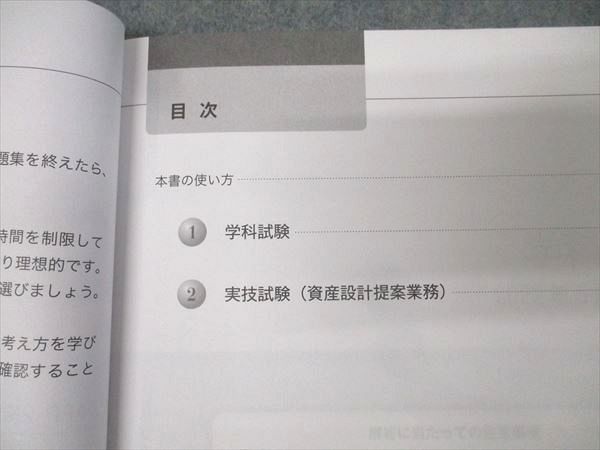 題集を終えたら、
時間を制限して
り理想的です。
選びましょう。
考え方を学び
確認すること
目次
本書の使い方
1 学科試験
2 実技試験（資産設計提案業務）